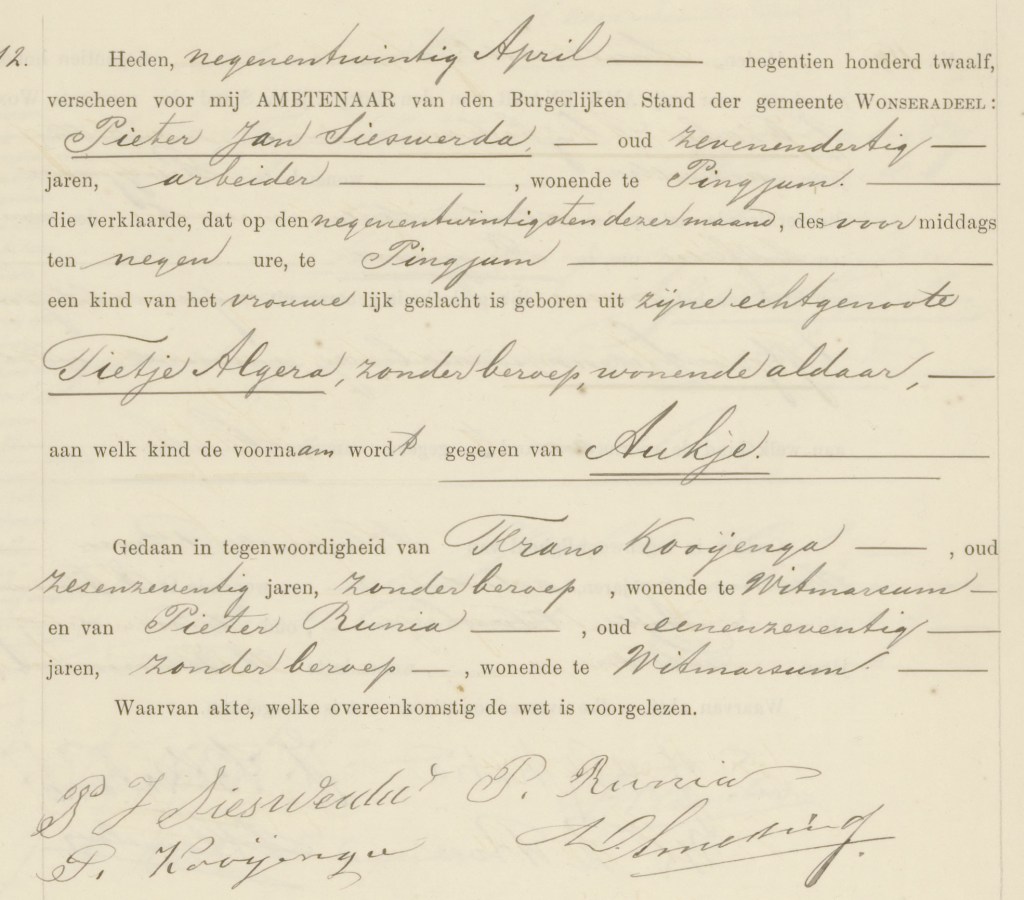 12. Heden, negenentwintig April negentien honderd twaalf,
verscheen voor mij AMBTENAAR van den Burgerlijken Stand der gemeente WONSERADEEL:
Pieter Jan Sieswerda, oud zevenendertig
jaren, arbeider, wonende te Pingjum.
die verklaarde, dat op den negenentwintigsten dezer maand, des voormiddags
ten negen ure, te Pingjum
een kind van het vrouwelijk geslacht is geboren uit zijne echtgenoote
Tietje Algera, zonder beroep, wonende aldaar,
aan welk kind de voornaam wordt gegeven van Aukje.
Gedaan in tegenwoordigheid van Frans Kooijenga, oud
zesenzeventig jaren, zonder beroep, wonende te Witmarsum
en van Pieter Runia, oud eenenzeventig
jaren, zonder beroep, wonende te Witmarsum.
Waarvan akte, welke overeenkomstig de wet is voorgelezen.
P J Sieswerda P. Runia
Kooijenga